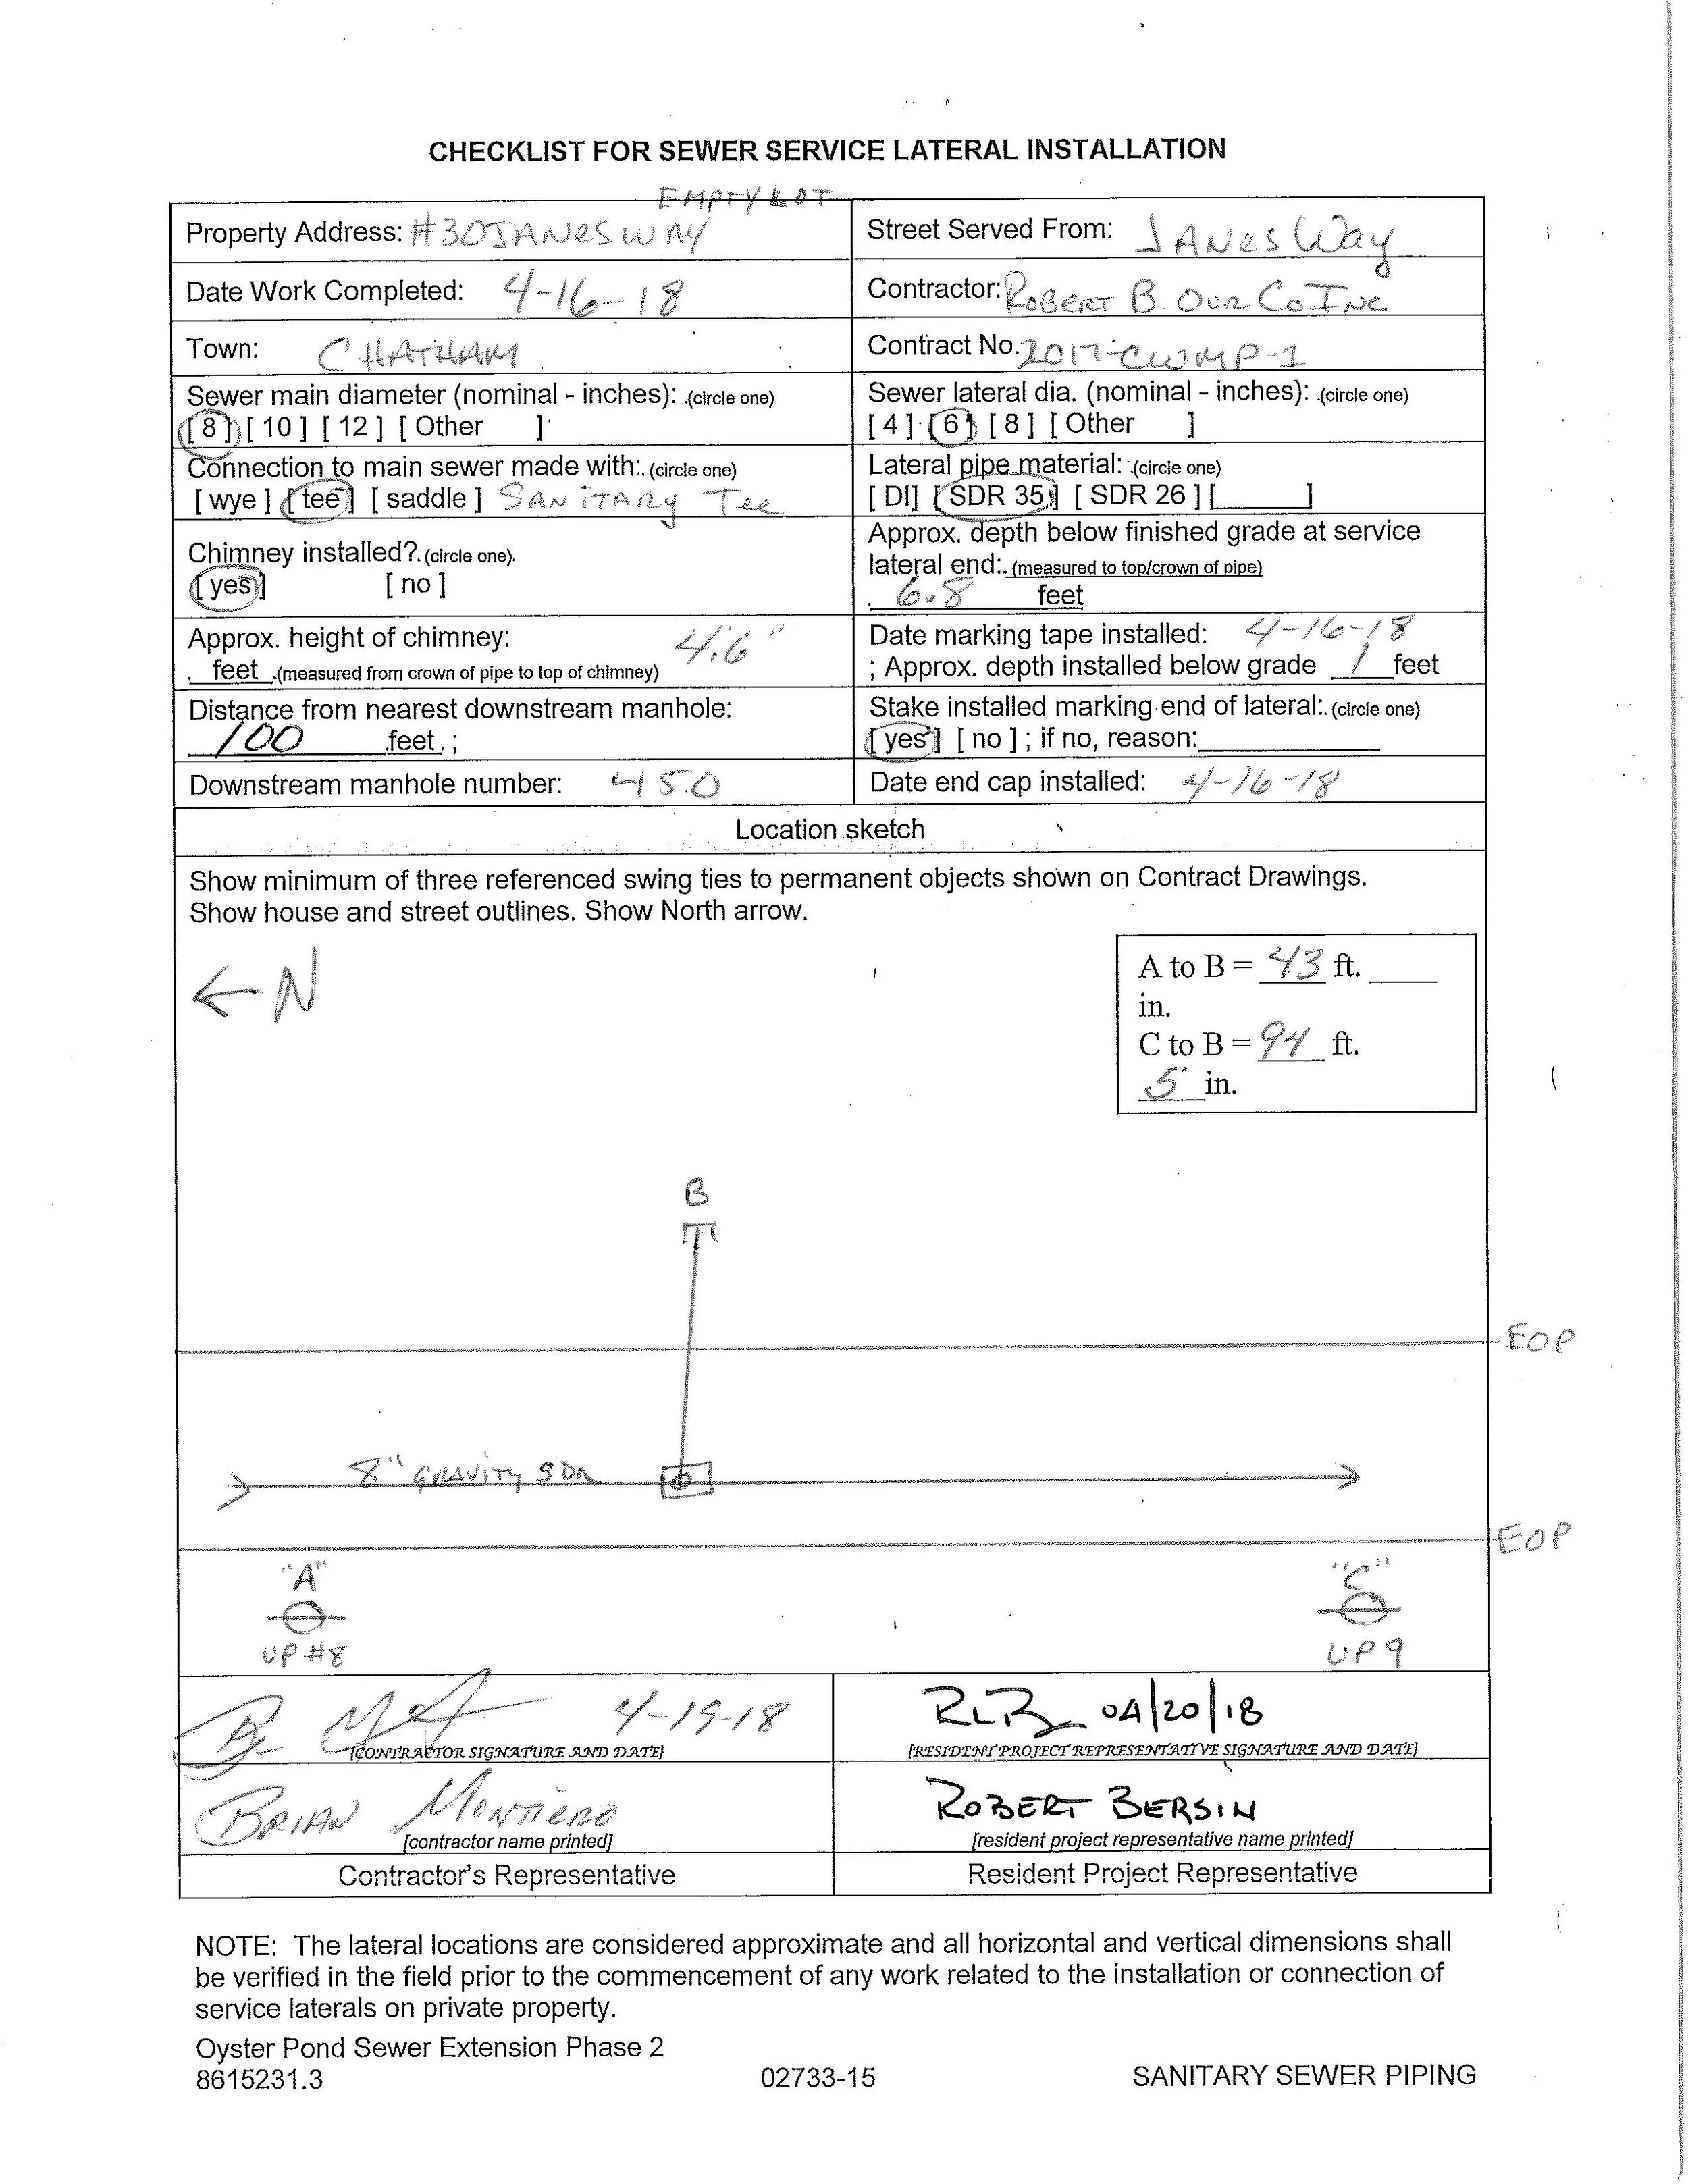 CHECKLIST FOR SEWER SERVICE LATERAL INSTALLATION
EMPTY LOT
Property Address: #30 JANES WAY
Street Served From: JANES WAY
Date Work Completed: 4-16-18
Contractor: ROBERT B. OUR CO INC
Town: CHATHAM
Contract No. 2017-CWMP-1
Sewer main diameter (nominal - inches): (circle one)
[ 8 ] [ 10 ] [ 12 ] [ Other ]
Sewer lateral dia. (nominal - inches): (circle one)
[ 4 ] [ 6 ] [ 8 ] [ Other ]
Connection to main sewer made with: (circle one)
[ wye ] [ tee ] [ saddle ] SANITARY Tee
Lateral pipe material: (circle one)
[ DI] [ SDR 35 ] [ SDR 26 ] [ ]
Chimney installed? (circle one).
[ yes ] [ no ]
Approx. depth below finished grade at service
lateral end: (measured to top/crown of pipe)
6.8 feet
Approx. height of chimney: 4.6"
feet (measured from crown of pipe to top of chimney)
Date marking tape installed: 4-16-18
; Approx. depth installed below grade 1 feet
Distance from nearest downstream manhole:
100 feet ;
Stake installed marking end of lateral: (circle one)
[ yes ] [ no ] ; if no, reason:
Downstream manhole number: 450
Date end cap installed: 4-16-18
Location sketch
Show minimum of three referenced swing ties to permanent objects shown on Contract Drawings.
Show house and street outlines. Show North arrow.
N
A to B = 43 ft.
in.
C to B = 94 ft.
5 in.
B
EOP
8" GRAVITY SDR
EOP
"A"
"C"
UP #8
UP 9
4-19-18
RLB 04/20/18
[CONTRACTOR SIGNATURE AND DATE]
[RESIDENT PROJECT REPRESENTATIVE SIGNATURE AND DATE]
BRIAN MONTIERO
ROBERT BERSIN
[contractor name printed]
[resident project representative name printed]
Contractor's Representative
Resident Project Representative
NOTE: The lateral locations are considered approximate and all horizontal and vertical dimensions shall
be verified in the field prior to the commencement of any work related to the installation or connection of
service laterals on private property.
Oyster Pond Sewer Extension Phase 2
8615231.3
02733-15
SANITARY SEWER PIPING